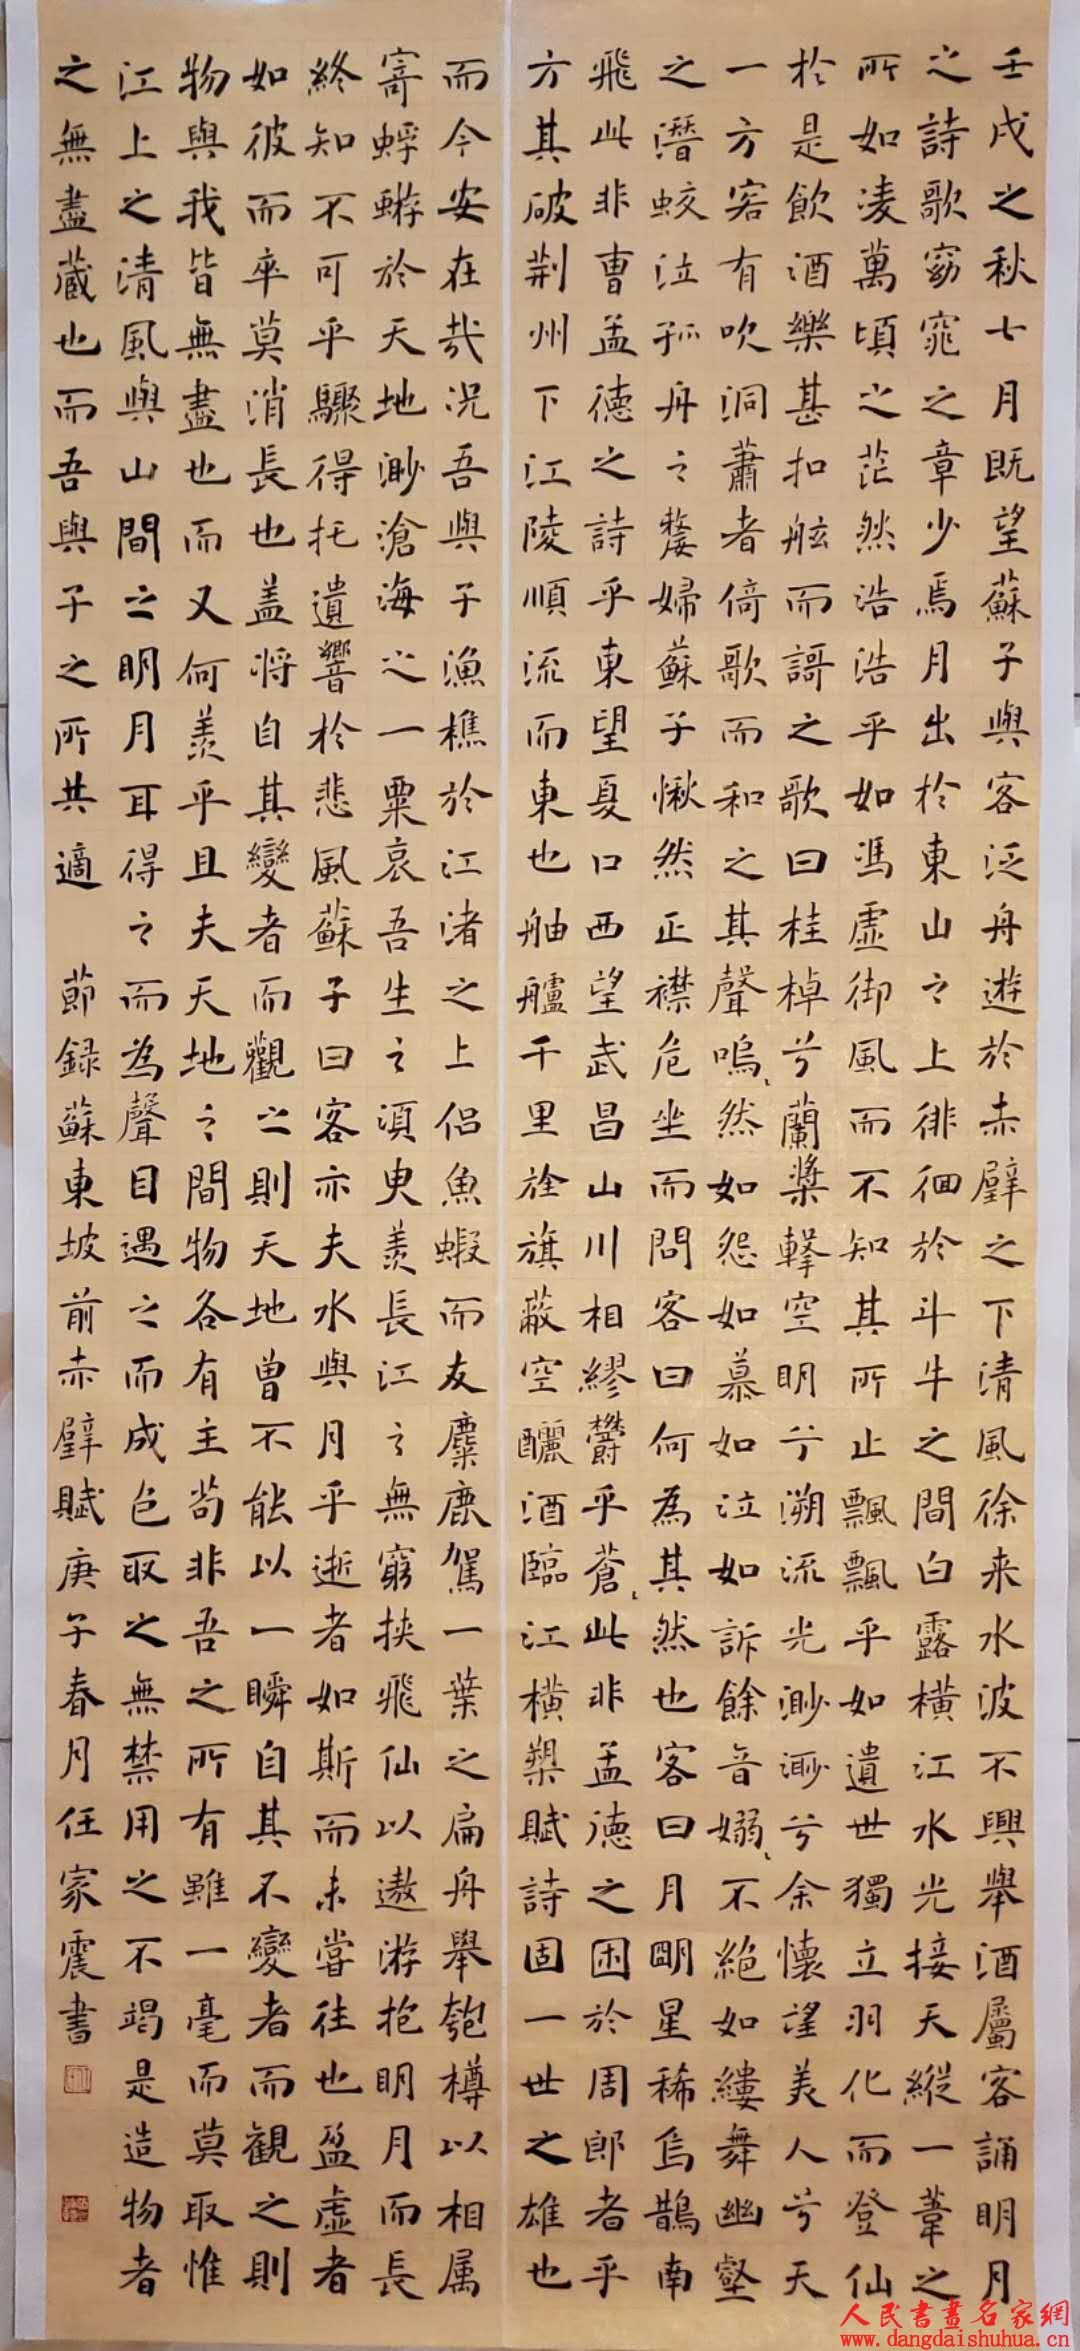 壬戌之秋七月既望蘇子與客泛舟遊於赤壁之下清風徐来水波不興舉酒屬客誦明月
之詩歌窈窕之章少焉月出於東山之上徘徊於斗牛之間白露橫江水光接天縱一葦之
所如凌萬頃之茫然浩浩乎如馮虛御風而不知其所止飄飄乎如遺世獨立羽化而登仙
於是飲酒樂甚扣舷而謌之歌曰桂棹兮蘭槳擊空明兮溯流光渺渺兮余懷望美人兮天
一方客有吹洞蕭者倚歌而和之其聲嗚、然如怨如慕如泣如訴餘音嫋、不絕如縷舞幽壑
之潛蛟泣孤舟之嫠婦蘇子愀然正襟危坐而問客曰何為其然也客曰月明星稀烏鵲南
飛此非曹孟德之詩乎東望夏口西望武昌山川相繆鬱乎蒼、此非孟德之困於周郎者乎
方其破荆州下江陵順流而東也舳艫千里旌旗蔽空釃酒臨江橫槊賦詩固一世之雄也
而今安在哉况吾與子漁樵於江渚之上侣魚蝦而友麋鹿駕一葉之扁舟舉匏樽以相属
寄蜉蝣於天地渺滄海之一粟哀吾生之須臾羨長江之無窮挾飛仙以遨游抱明月而長
終知不可乎驟得托遺響於悲風蘇子曰客亦夫水與月乎逝者如斯而未嘗往也盈虛者
如彼而卒莫消長也盖将自其變者而觀之則天地曾不能以一瞬自其不變者而観之則
物與我皆無盡也而又何羨乎且夫天地之間物各有主苟非吾之所有雖一毫而莫取惟
江上之清風與山間之明月耳得之而為聲目遇之而成色取之無禁用之不竭是造物者
之無盡藏也而吾與子之所共適 節録蘇東坡前赤壁賦庚子春月任家震書
人民書畫名家網
www.dangdaishuhua.cn